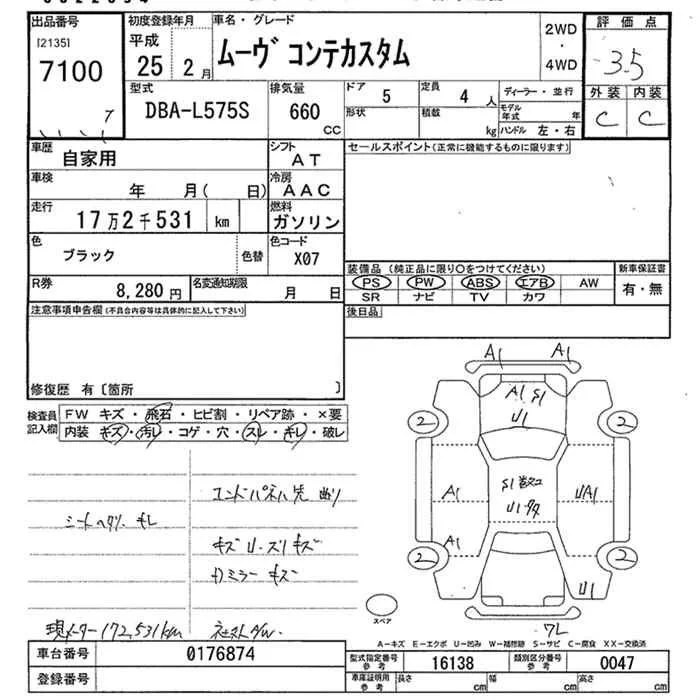 出品番号 初度登録年月 車名・グレード 2WD 評価点
[2135] 平成 ムーヴ コンテカスタム ・ 3.5
7100 25 2月 4WD 外装 内装
型式 排気量 ドア 定員 ディーラー・並行 C C
DBA-L575S 660 CC 5 4 人 モデル年式 年
形状 積載 kg ハンドル 左・右
車歴 自家用 シフト AT セールスポイント(正常に機能するものに限ります)
車検 年 月( 日) 冷房 AAC
走行 17万2千531 km 燃料 ガソリン
色 ブラック 色替 色コード X07
装備品 (純正品に限り○をつけてください) 新車保証書
R券 8,280円 名変通知期限 月 日 PS PW ABS エアB AW 有・無
SR ナビ TV カワ
注意事項申告欄(不具合内容等は具体的に記入して下さい) 後日品
修復歴 有〔箇所 〕
検査員記入欄 FW キズ・飛石・ヒビ割・リペア跡・×要
内装 キズ・汚レ・コゲ・穴・スレ・キレ・破レ
A1 A1
A1 S1
U1
2 2
シートヘタリ キレ
キズ U・スリキズ
ドミラー キズ
A1 S1 UA1
U1多
A1
2 2
U1
スペア
現メーター172,531km
A-キズ E-エクボ U-凹み W-補修跡 S-サビ C-腐食 XX-交換済
車台番号 0176874 型式指定番号 参考 16138 類別区分番号 参考 0047
登録番号 車庫証明用 参考 長さ cm 幅 cm 高さ cm